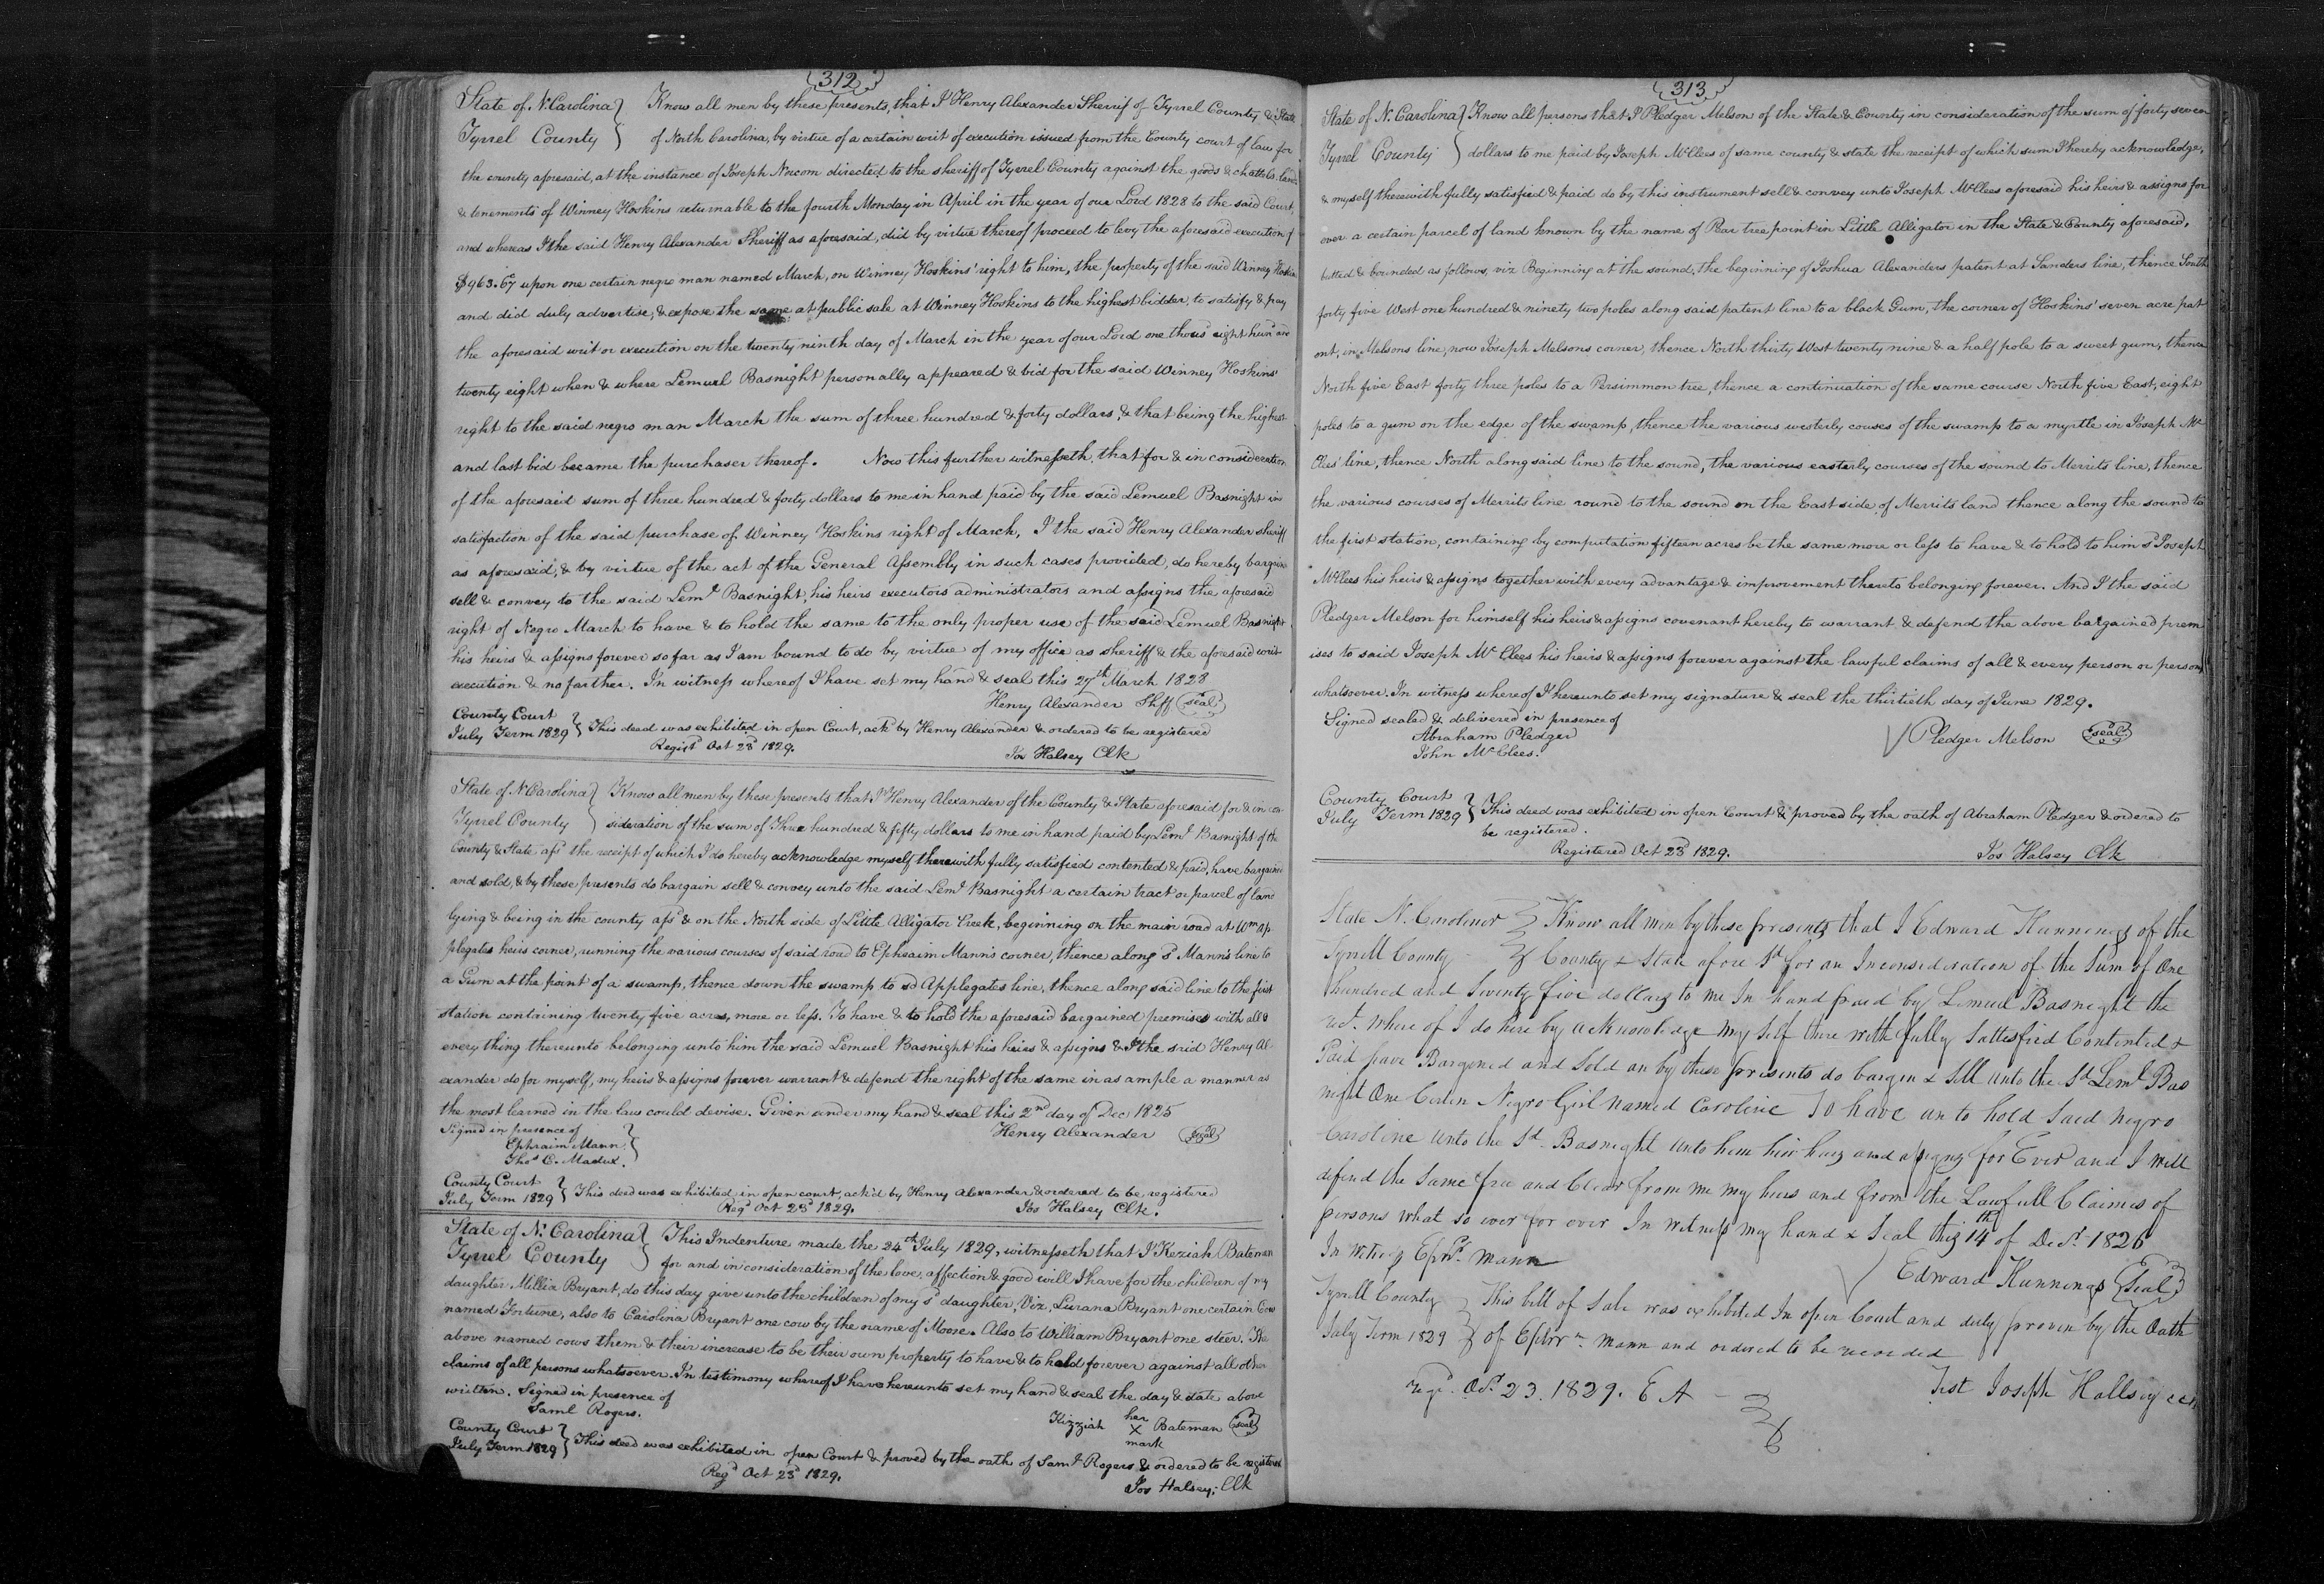 312
State of N. Carolina } Know all men by these presents, that I Henry Alexander Sherrif of Tyrrel County & State
Tyrrel County } of North Carolina, by virtue of a certain writ of execution issued from the County court of law for
the county aforesaid, at the instance of Joseph Norcom directed to the sheriff of Tyrrel County against the goods & chattles lands
& tenements of Winney Hoskins returnable to the fourth Monday in April in the year of our Lord 1828 to the said Court,
and whereas I the said Henry Alexander Sheriff as aforesaid, did by virtue thereof proceed to levy the aforesaid execution of
$963.67 upon one certain negro man named March, on Winney Hoskins' right to him, the property of the said Winney Hoskins
and did duly advertise, & expose the same at public sale at Winney Hoskins to the highest bidder, to satisfy & pay
the aforesaid writ or execution on the twenty ninth day of March in the year of our Lord one thous'd eight hun'd and
twenty eight when & where Lemuel Basnight personally appeared & bid for the said Winney Hoskins'
right to the said negro man March the sum of three hundred & forty dollars, & that being the highest
and last bid became the purchaser thereof. Now this further witnesseth, that for & in consideration
of the aforesaid sum of three hundred & forty dollars to me in hand paid by the said Lemuel Basnight in
satisfaction of the said purchase of Winney Hoskins right of March, I the said Henry Alexander sheriff
as aforesaid, & by virtue of the act of the General Assembly in such cases provided, do hereby bargain
sell & convey to the said Lem.l Basnight, his heirs executors administrators and assigns the aforesaid
right of Negro March to have & to hold the same to the only proper use of the said Lemuel Basnight
his heirs & assigns forever so far as I am bound to do by virtue of my office as sheriff & the aforesaid writ
execution & no farther. In witness whereof I have set my hand & seal this 29th March 1828
Henry Alexander Shff (seal)
County Court
July Term 1829 } This deed was exhibited in open Court, ack'd by Henry Alexander & ordered to be registered
Regist'd Oct 23d 1829. Jos Halsey Clk
State of N. Carolina } Know all men by these presents that I Henry Alexander of the County & State aforesaid for & in con
Tyrrel County } sideration of the sum of Three hundred & fifty dollars to me in hand paid by Lem.l Basnight of the
County & State afs.d the receipt of which I do hereby acknowledge myself therewith fully satisfied contented & paid, have bargained
and sold, & by these presents do bargain sell & convey unto the said Lem.l Basnight a certain tract or parcel of land
lying & being in the county afs.d & on the North side of Little Alligator Creek, beginning on the main road at Wm Ap-
plegates heirs corner, running the various courses of said road to Ephraim Mann's corner, thence along s.d Mann's line to
a Gum at the point of a swamp, thence down the swamp to sd Applegates line, thence along said line to the first
station containing twenty five acres, more or less. To have & to hold the aforesaid bargained premises with all &
every thing thereunto belonging unto him the said Lemuel Basnight his heirs & assigns & I the said Henry Al-
exander do for myself, my heirs & assigns forever warrant & defend the right of the same in as ample a manner as
the most learned in the law could devise. Given under my hand & seal this 2nd day of Dec 1825
Signed in presence of Henry Alexander (seal)
Ephraim Mann
Tho.s C.
County Court
July Term 1829 } This deed was exhibited in open court, ack'd by Henry Alexander & ordered to be registered
Reg.d Oct 23d 1829. Jos Halsey Clk.
State of N. Carolina } This Indenture made the 24th July 1829, witnesseth that I Keziah Bateman
Tyrrel County } for and in consideration of the love, affection & good will I have for the children of my
daughter Millia Bryant, do this day give unto the children of my s.d daughter, Viz, Lurana Bryant one certain Cow
named Fortune, also to Carolina Bryant one cow by the name of Moose. Also to William Bryant one steer. The
above named cows them & their increase to be their own property to have & to hold forever against all other
claims of all persons whatsoever. In testimony whereof I have hereunto set my hand & seal the day & date above
written. Signed in presence of
Saml Rogers. Kizziah her X mark Bateman (seal)
County Court
July Term 1829 } This deed was exhibited in open Court & proved by the oath of Sam.l Rogers & ordered to be registered
Reg.d Oct 23d 1829. Jos Halsey, Clk
313
State of N. Carolina } Know all persons that I Pledger Melson of the State & County in consideration of the sum of forty seven
Tyrrel County } dollars to me paid by Joseph McClees of same county & state the receipt of which sum I hereby acknowledge,
& myself therewith fully satisfied & paid do by this instrument sell & convey unto Joseph McClees aforesaid his heirs & assigns for
over a certain parcel of land known by the name of Pear tree point in Little Alligator in the State & County aforesaid,
butted & bounded as follows, viz Beginning at the sound, the beginning of Joshua Alexanders patent at Sanders line, thence South
forty five West one hundred & ninety two poles along said patent line to a black Gum, the corner of Hoskins' seven acre pat
ent, in Melsons line, now Joseph Melsons corner, thence North thirty West twenty nine & a half pole to a sweet gum, thence
North five East forty three poles to a Persimmon tree, thence a continuation of the same course North five East, eight
poles to a gum on the edge of the swamp, thence the various westerly couses of the swamp to a myrtle in Joseph Mc
Clees' line, thence North along said line to the sound, the various easterly courses of the sound to Merrits line, thence
the various courses of Merrits line round to the sound on the East side of Merrits land thence along the sound to
the first station, containing by computation fifteen acres be the same more or less to have & to hold to him s.d Joseph
McClees his heirs & assigns together with every advantage & improvement thereto belonging forever. And I the said
Pledger Melson for himself his heirs & assigns covenant hereby to warrant & defend the above bargained prem
ises to said Joseph McClees his heirs & assigns forever against the lawful claims of all & every person or persons
whatsoever. In witness whereof I hereunto set my signature & seal the thirtieth day of June 1829.
Signed sealed & delivered in presence of
Abraham Pledger
John McClees. Pledger Melson (seal)
County Court
July Term 1829 } This deed was exhibited in open Court & proved by the oath of Abraham Pledger & ordered to
be registered.
Registered Oct 23d 1829. Jos Halsey Clk
State N. Caroliner } Know all men by these presents that I Edward Hunnings of the
Tyrrell County } County & State afore Sd for an Inconsideration of the Sum of One
hundred and Twenty five dollars to me In hand paid by Lemuel Basnight the
rect. where of I do here by acknowledge my self there with fully Sattisfied Contented &
Paid have Bargened and Sold an by these presents do bargen & Sell unto the Sd Leml Bas
night One Certen Negro Girl named Caroline To have un to hold Said negro
Caroline unto the Sd. Basnight unto him hir heirs and assigns for Ever and I will
defend the Same free and Clear from me my heirs and from the Lawfull Claimes of
persons what so ever for ever In witness my hand & Seal this 14th of Decr. 1826
In witness Ephm. Mann
Edward Hunnings (Seal)
Tyrrell County } This bill of Sale was exhibited In open Court and duly proven by the Oath
July Term 1829 } of Ephrm Mann and ordered to be recorded
regd. Oct. 23. 1829. E A Test Joseph Hallsey